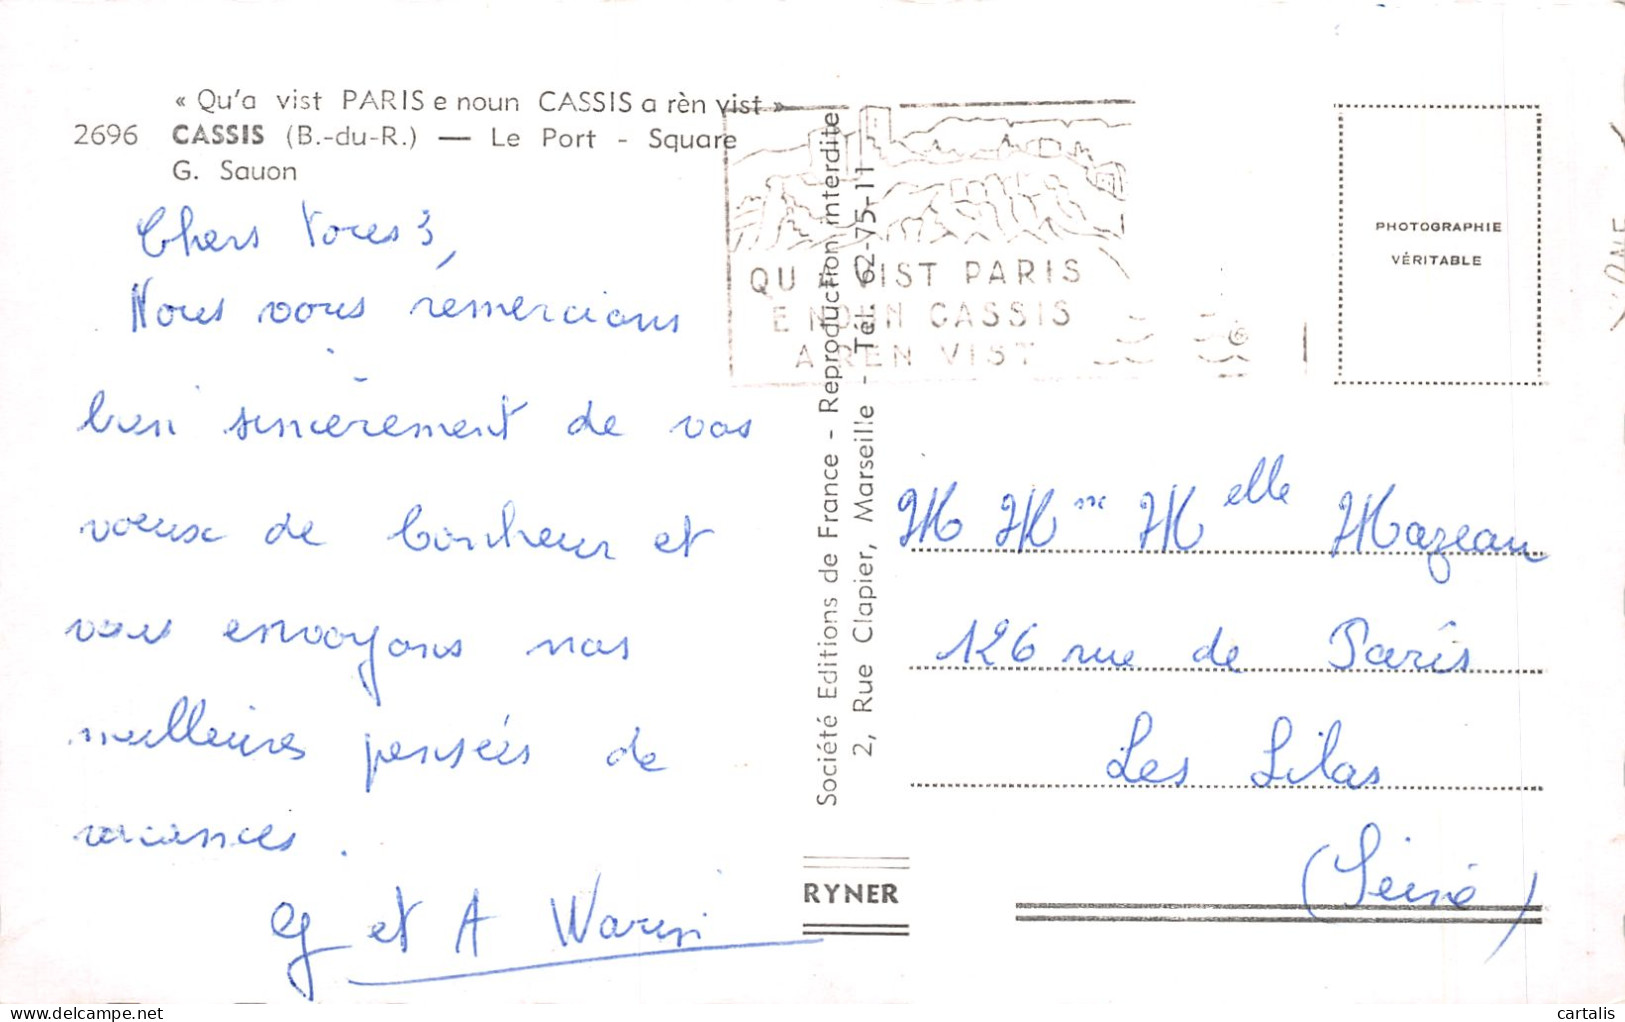 « Qu'a vist PARIS e noun CASSIS a rèn vist »
2696 CASSIS (B.-du-R.) — Le Port - Square
G. Sauon
Chers Vous 3,
Nous vous remercions
bien sincèrement de vos
voeux de bonheur et
vous envoyons nos
meilleures pensées de
vacances.
G et A Warin
Société Editions de France - Reproduction interdite
2, Rue Clapier, Marseille - Tél. 62-75-11
RYNER
QU'A VIST PARIS
E NOUN CASSIS
A REN VIST
PHOTOGRAPHIE
VÉRITABLE
M Mme Melle Mazeau
126 rue de Paris
Les Lilas
(Seine)
delcampe.net
cartalis